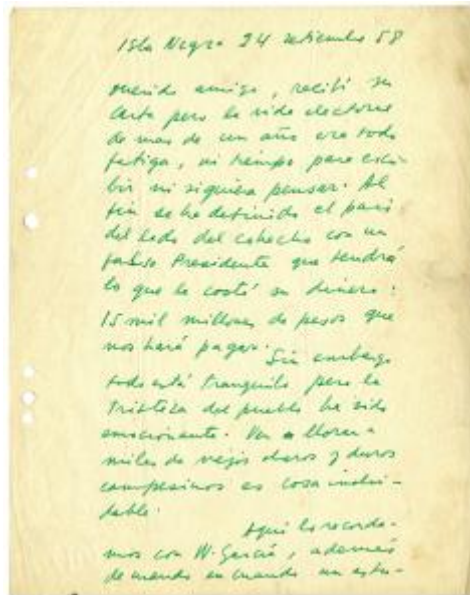 Isla Negra 24 setiembre 58
Querido amigo, recibí su
carta pero la vida electoral
de mas de un año era todo
fatiga, ni tiempo para escri-
bir ni siquiera pensar. Al
fin se ha definido el pais
del lado del cohecho con un
falso Presidente que tendrá
lo que le costó su dinero:
15 mil millones de pesos que
nos hará pagar. Sin embargo
todo está tranquilo pero la
tristeza del pueblo ha sido
emocionante. Ver a llorar a
miles de viejos duros y duros
campesinos es cosa inolvi-
dable.
Aqui lo recorda-
mos con W. García, además
de cuando en cuando un